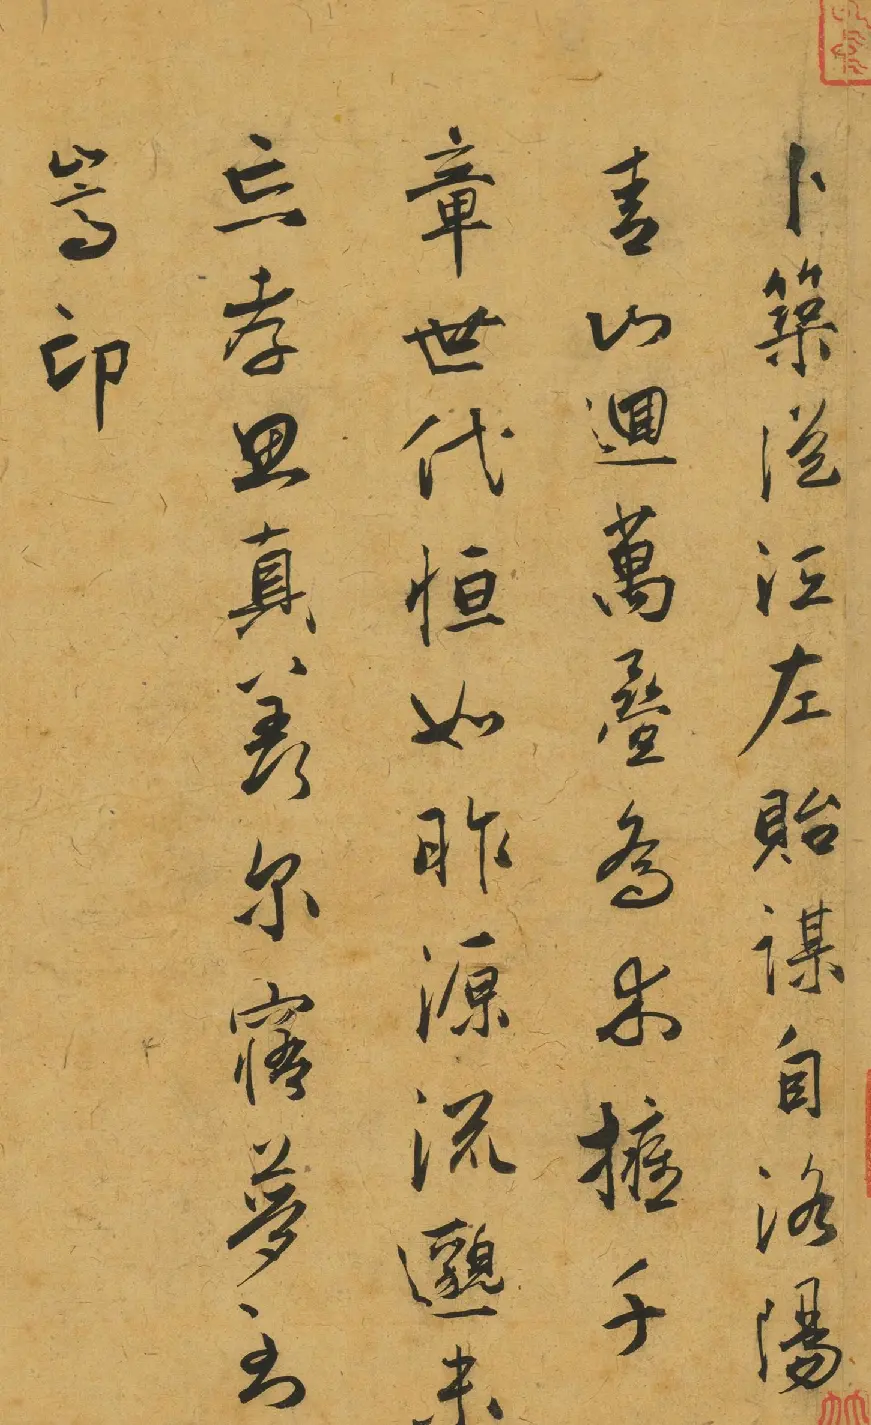 卜築從江左貽謀自洛陽
青山迴萬疊喬木擁千
章世代恒如昨源流邈未
忘孝思真羨尔寤夢到
嵩邙